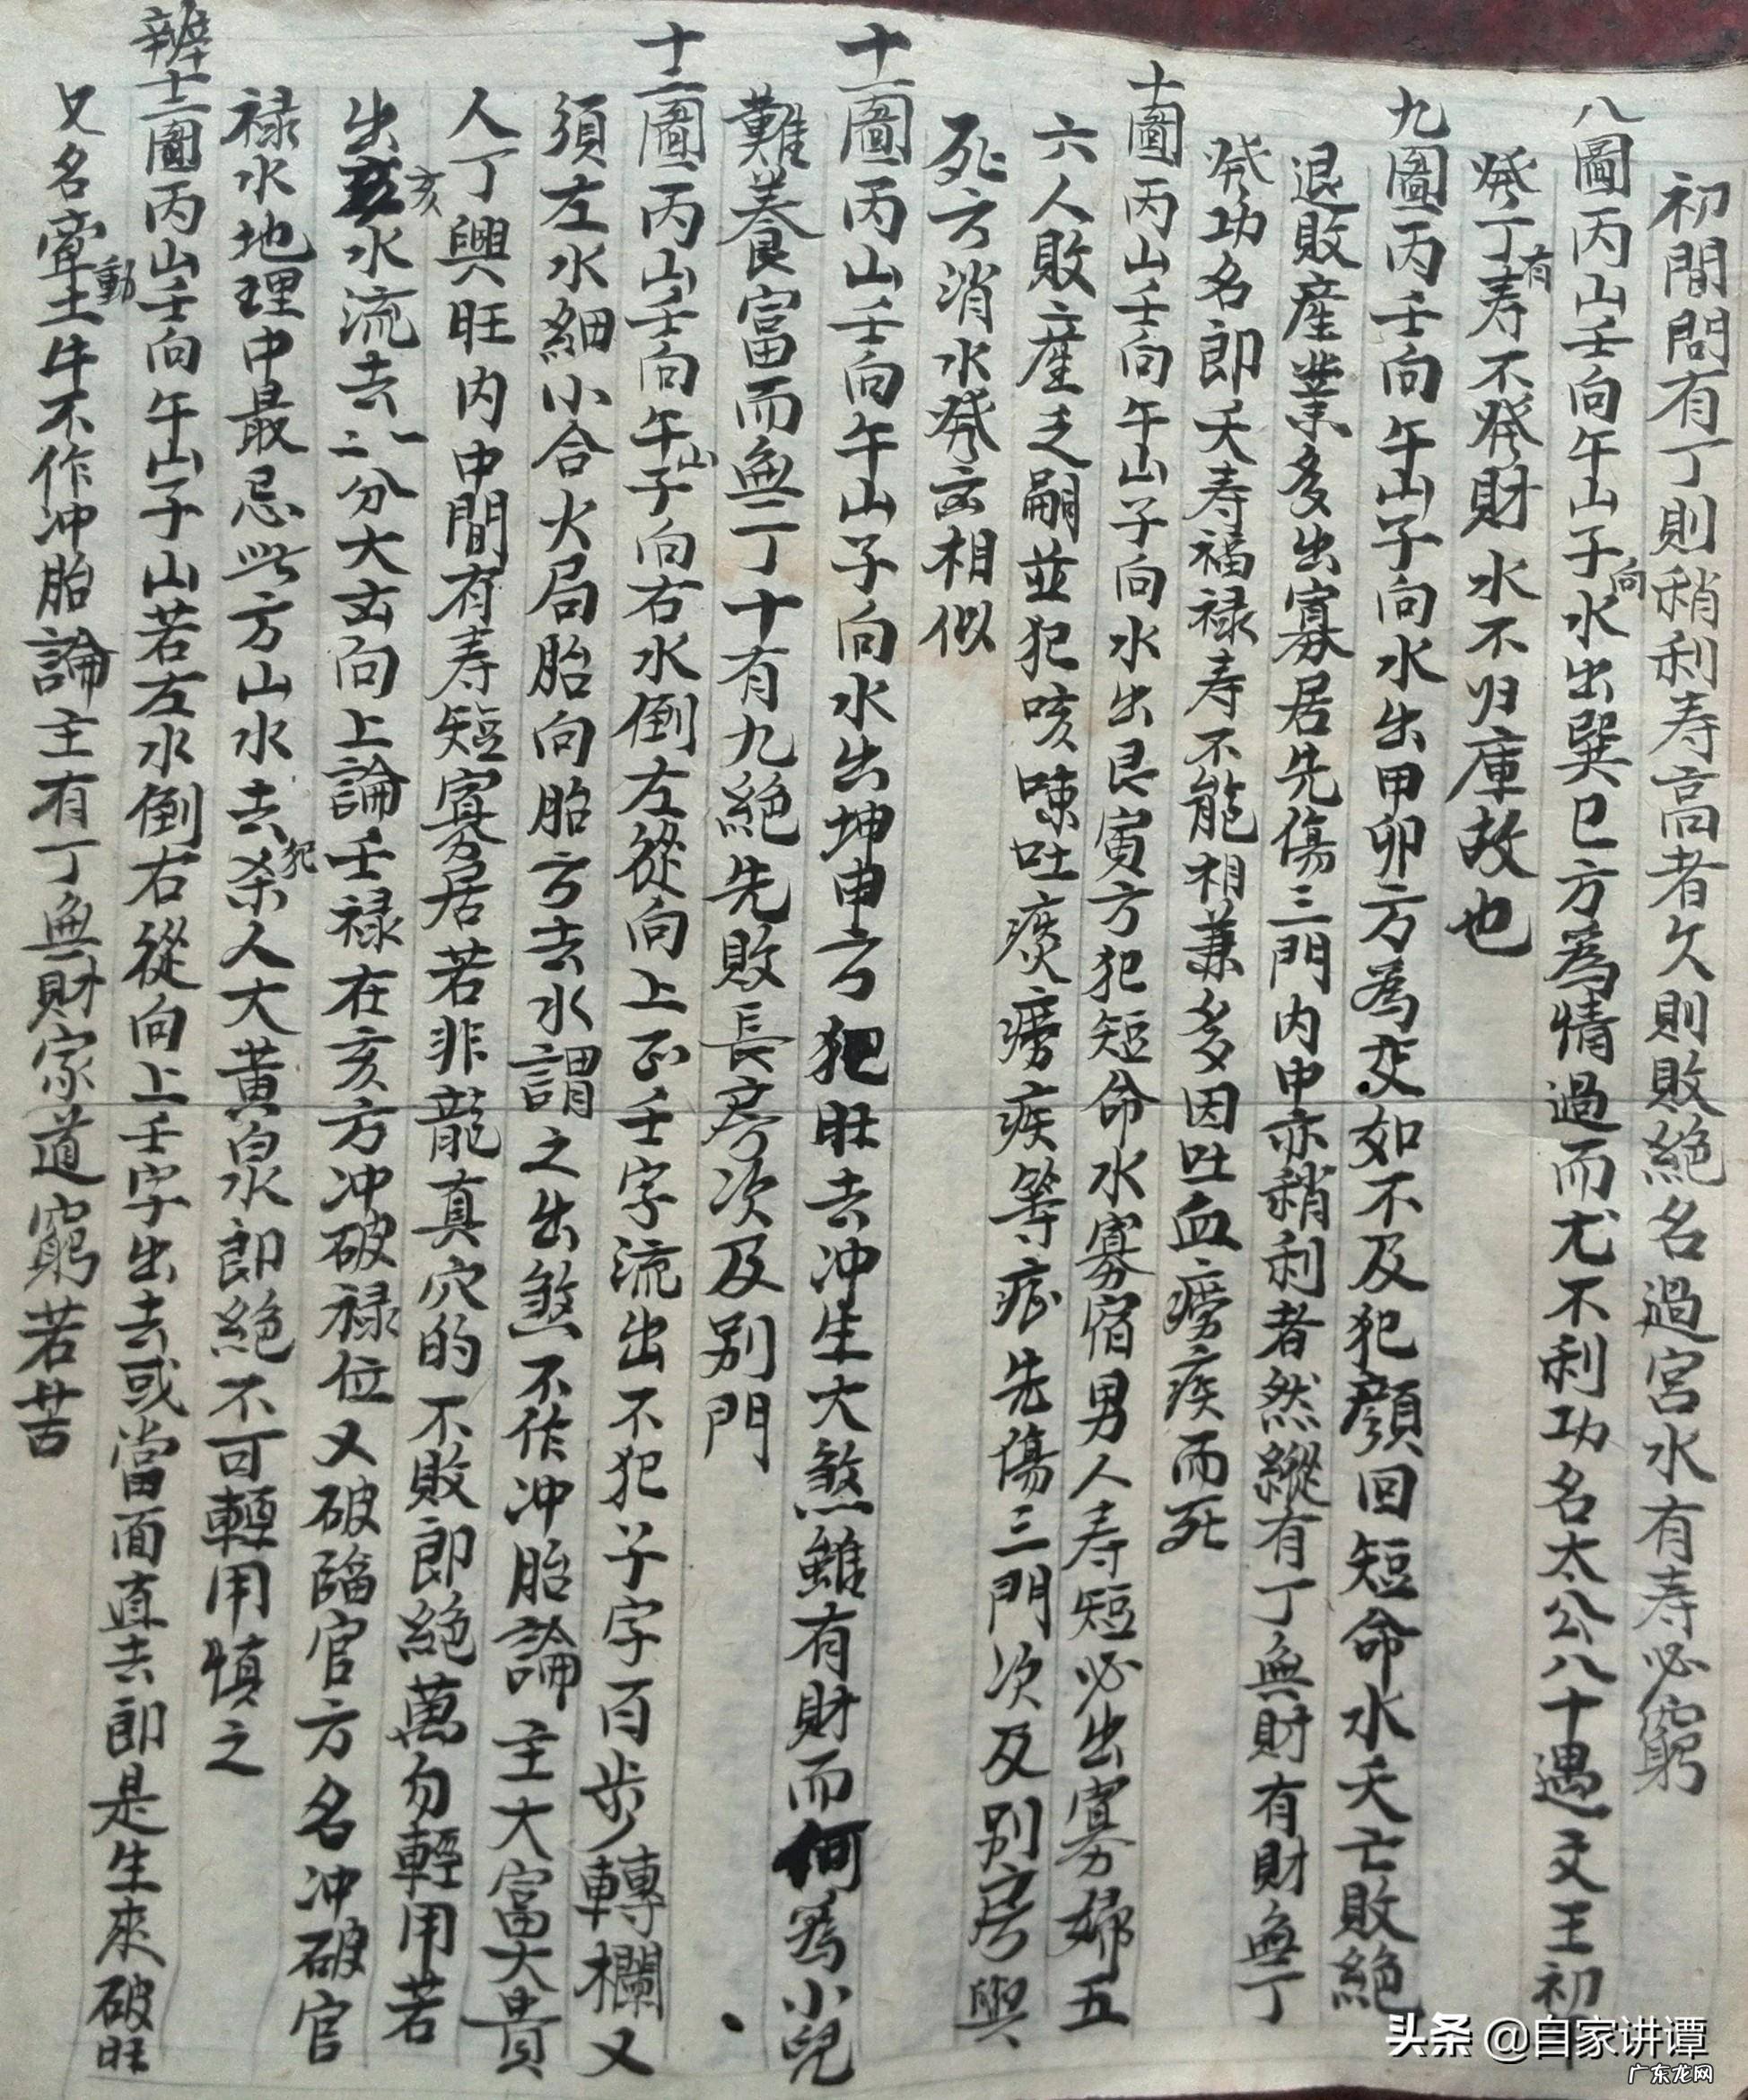 初間問有丁則稍利寿高者久則敗絕名過宮水有寿必窮
八圖丙山壬向午山子向水出巽巳方為情過而尤不利功名太公八十遇文王初
發丁有寿不發財水不归庫故也
九圖丙壬向午山子向水出甲卯方為交如不及犯顏回短命水夭亡敗絕
退敗産業多出寡居先傷三門内中亦稍利者然縱有丁無財有財無丁
發功名郎夭寿福禄寿不能相兼多因吐血癆疾而死
十圖丙山壬向午山子向水出艮寅方犯短命水寡宿男人寿短必出寡婦五
六人敗産乏嗣並犯咳嗽吐痰癆疾等症先傷三門次及别房與
死方消水發去相似
十一圖丙山壬向午山子向水出坤申方犯旺去冲生大煞雖有財而何爲小兒
難養富而無丁十有九絕先敗長房次及别門
十二圖丙山壬向午山子向右水倒左從向上正壬字流出不犯子字百步轉欄又
須左水細小合火局胎向胎方去水謂之出煞不作冲胎論主大富大貴
人丁興旺内中間有寿短寡居若非龍真穴的不敗即絕萬勿輕用若
出亥亥水流去一二分大玄向上論壬禄在亥方冲破禄位又破臨官方名冲破官
禄水地理中最忌此方山水去犯杀人大黄白水即絕不可輕用慎之
辨十二圖丙山壬向午山子山若左水倒右從向上壬字出去或當面直去即是生來破旺
又名牽動土牛不作冲胎論主有丁無財家道窮若苦
头条 @自家讲谭
广东龙网